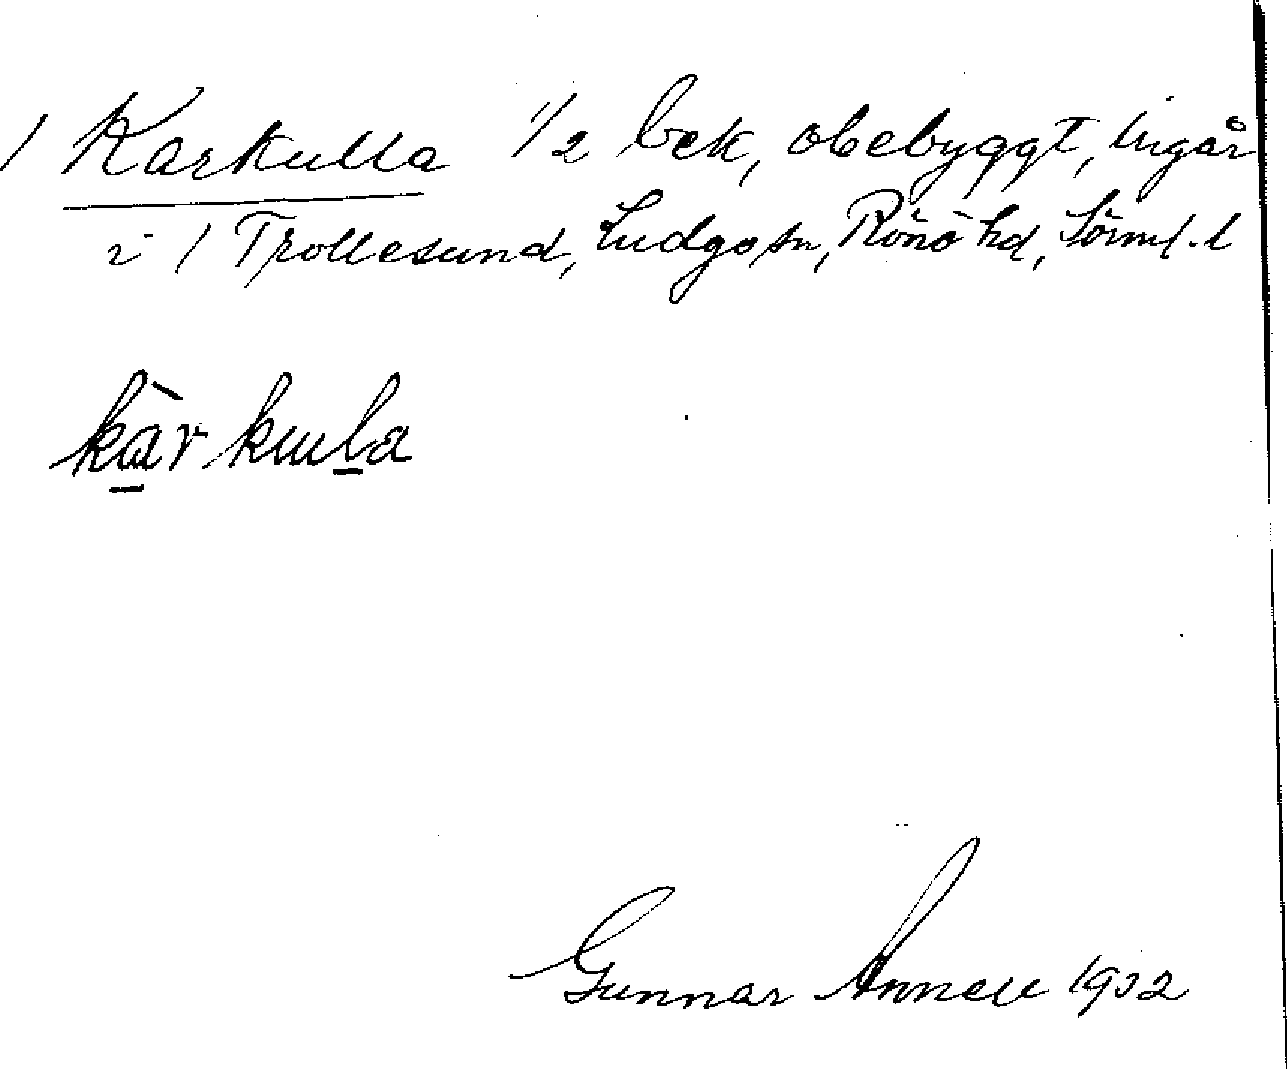 / Karkulla 1/2 bek, obebyggt, ingår
i / Trollesund, Ludgo sn, Rönö hd, Sörml. l
kàrkula
Gunnar Annell 1932